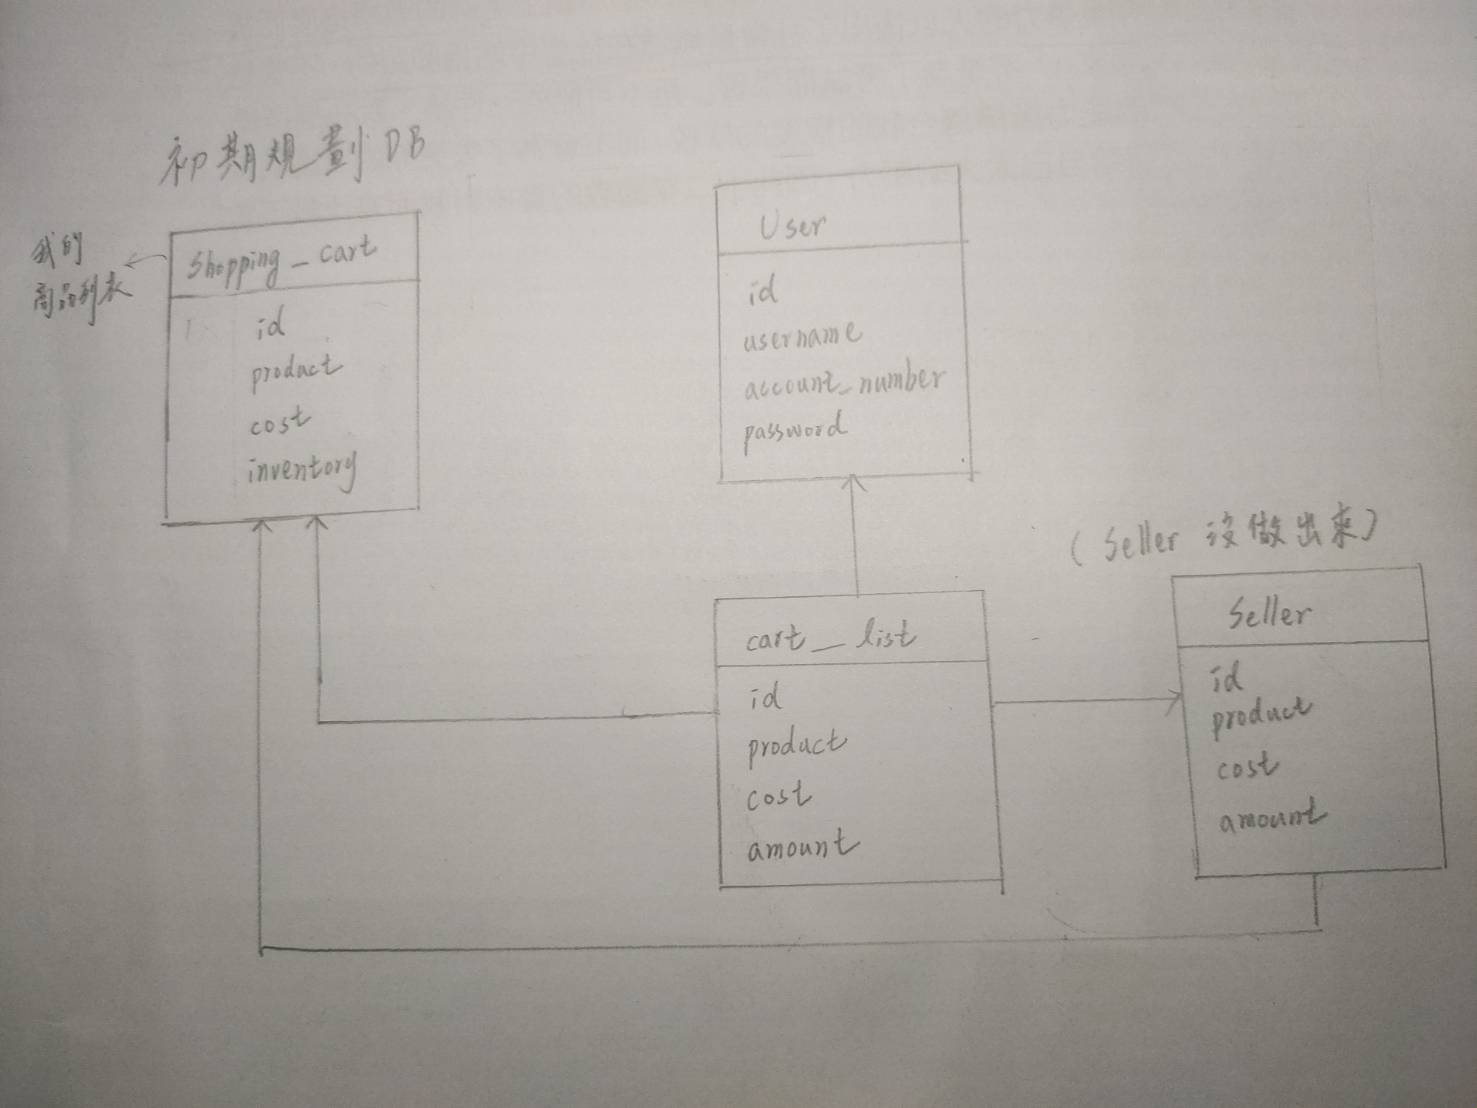 初期規劃DB
我的
商品列表
Shopping_cart
id
product
cost
inventory
User
id
username
account_number
password
(Seller 沒做出來)
cart_list
id
product
cost
amount
Seller
id
product
cost
amount